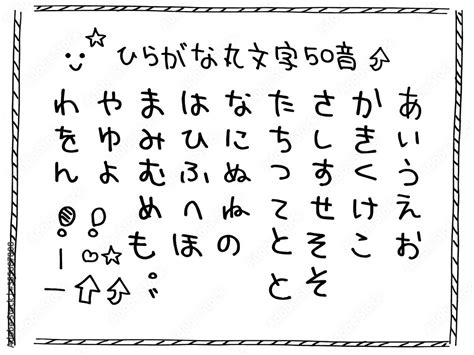 ひらがな丸文字50音
あいうえお
かきくけこ
さしすせそそ
たちつてとと
なにぬねの
はひふへほ
まみむめも゜゛
やゆよ
わをん